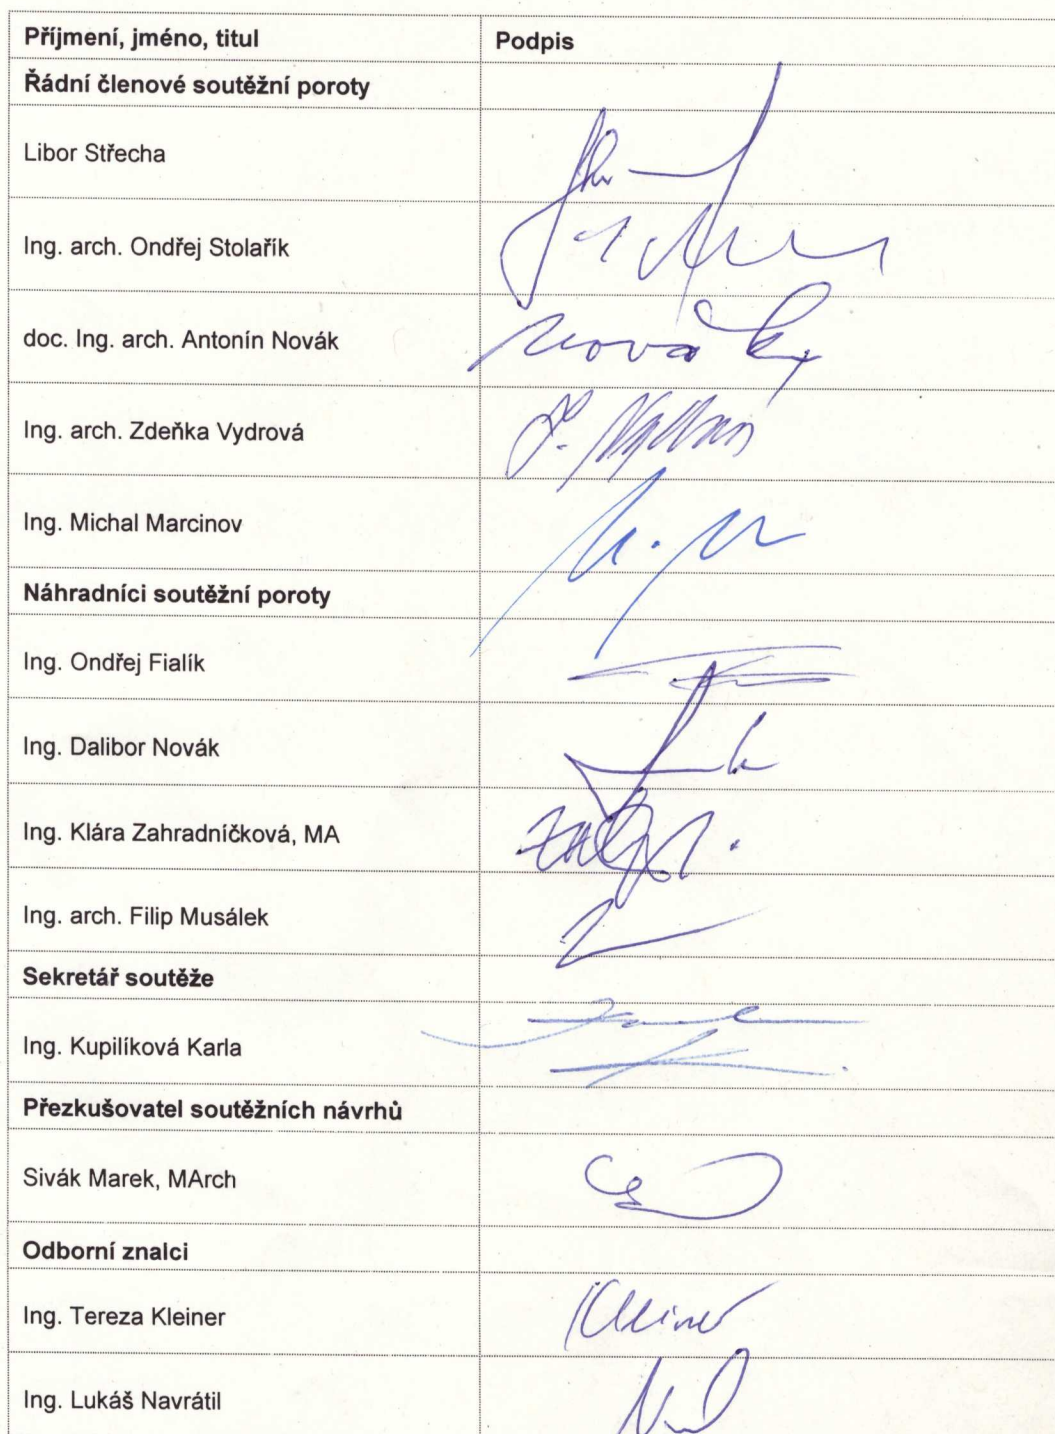 Příjmení, jméno, titul Podpis
Řádní členové soutěžní poroty
Libor Střecha
Ing. arch. Ondřej Stolařík
doc. Ing. arch. Antonín Novák Novák
Ing. arch. Zdeňka Vydrová
Ing. Michal Marcinov
Náhradníci soutěžní poroty
Ing. Ondřej Fialík
Ing. Dalibor Novák
Ing. Klára Zahradníčková, MA
Ing. arch. Filip Musálek
Sekretář soutěže
Ing. Kupilíková Karla
Přezkušovatel soutěžních návrhů
Sivák Marek, MArch
Odborní znalci
Ing. Tereza Kleiner Kleiner
Ing. Lukáš Navrátil